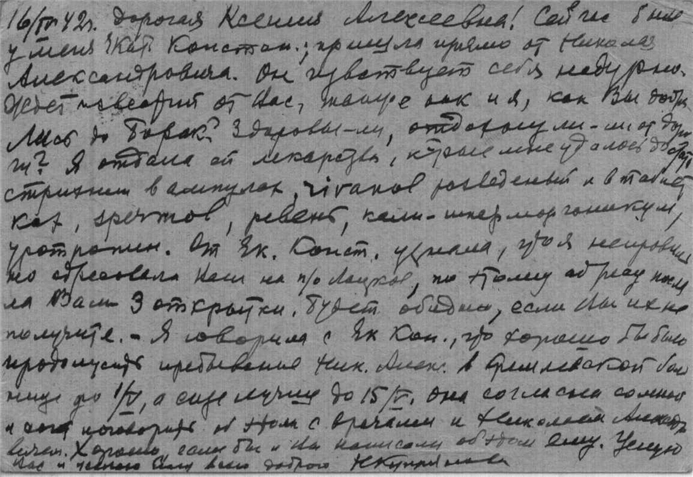 16/IV 42 г. Дорогая Ксения Алексеевна! Сейчас была
у меня Екат. Констан.; пришла прямо от Николая
Александровича. Он чувствует себя недурно.
Ждет известий от Вас, также как и я, как Вы добра-
лись до Борка? Здоровы-ли, отдохнули-ли от доро-
ги? Я отдала ей лекарства, которые мне удалось достать
стрихнин в ампулах, rivanol разведенный и в таблет-
ках, spermol, ревень, кали-гипермарганикум,
уротропин. От Ек. Конст. узнала, что я неправиль-
но адресовала Вам на п/о по этому адресу посла-
ла Вам 3 открытки. Будет обидно, если Вы их не
получите. - Я говорила с Ек. Кон., что хорошо бы было
продолжить пребывание Ник. Алек. в Кремлевской боль-
нице до 1/V, а еще лучше до 15/V. Она согласна со мной
и поговорить об этом с врачами и Николаем Алексан-
вичем. Хорошо, если бы и Вы написали об этом ему. Целую
Вас и желаю Вам всего доброго